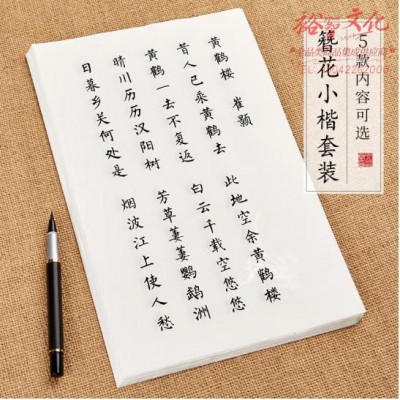 5款内容可选
簪花小楷套装
黄鹤楼 崔颢
昔人已乘黄鹤去
此地空余黄鹤楼
黄鹤一去不复返
白云千载空悠悠
晴川历历汉阳树
芳草萋萋鹦鹉洲
日暮乡关何处是
烟波江上使人愁
文化